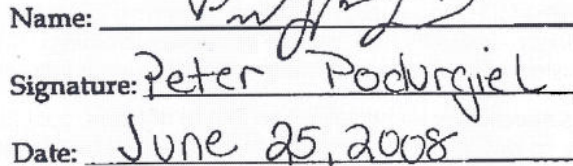 Name:
Signature: Peter Podurgiel
Date: June 25, 2008